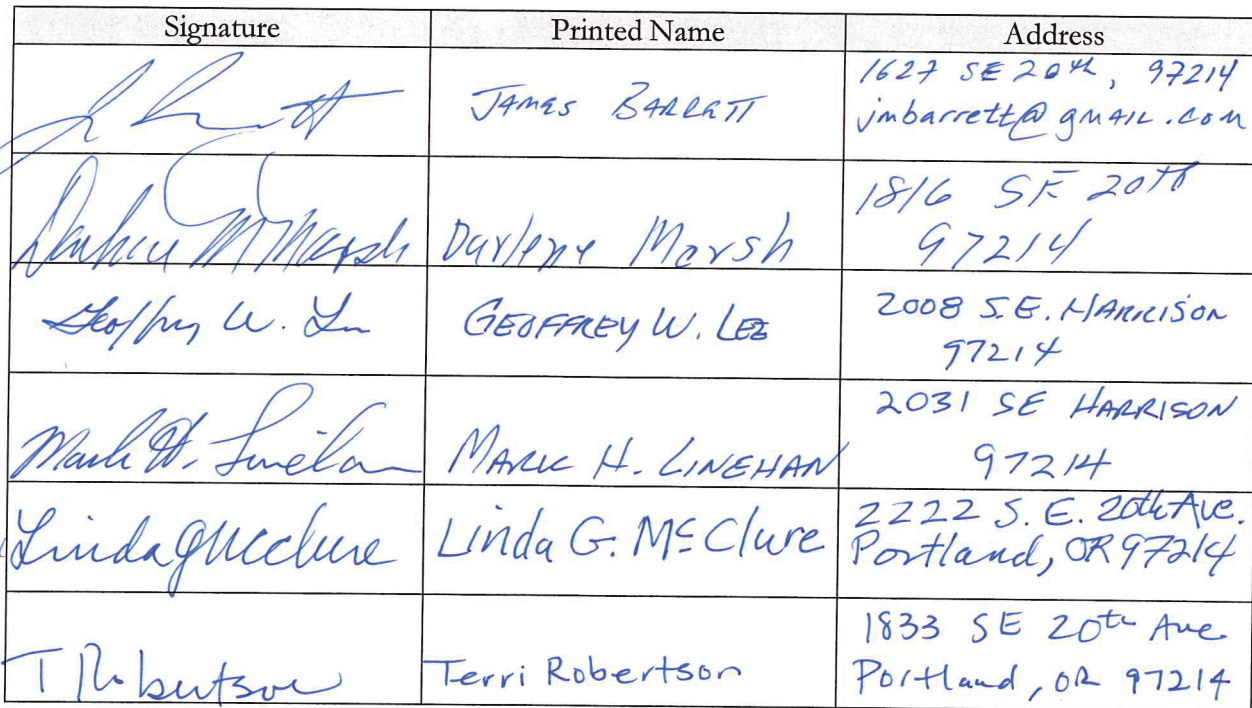 Signature Printed Name Address
J Barrett JAMES BARRETT 1627 SE 20th, 97214
jmbarrett@gmail.com
Darlene M Marsh Darlene Marsh 1816 SE 20th
97214
Geoffrey W. Lee GEOFFREY W. LEE 2008 S.E. HARRISON
97214
Mark H. Linehan MARK H. LINEHAN 2031 SE HARRISON
97214
Linda G McClure Linda G. McClure 2222 S.E. 20th Ave.
Portland, OR 97214
T Robertson Terri Robertson 1833 SE 20th Ave
Portland, OR 97214